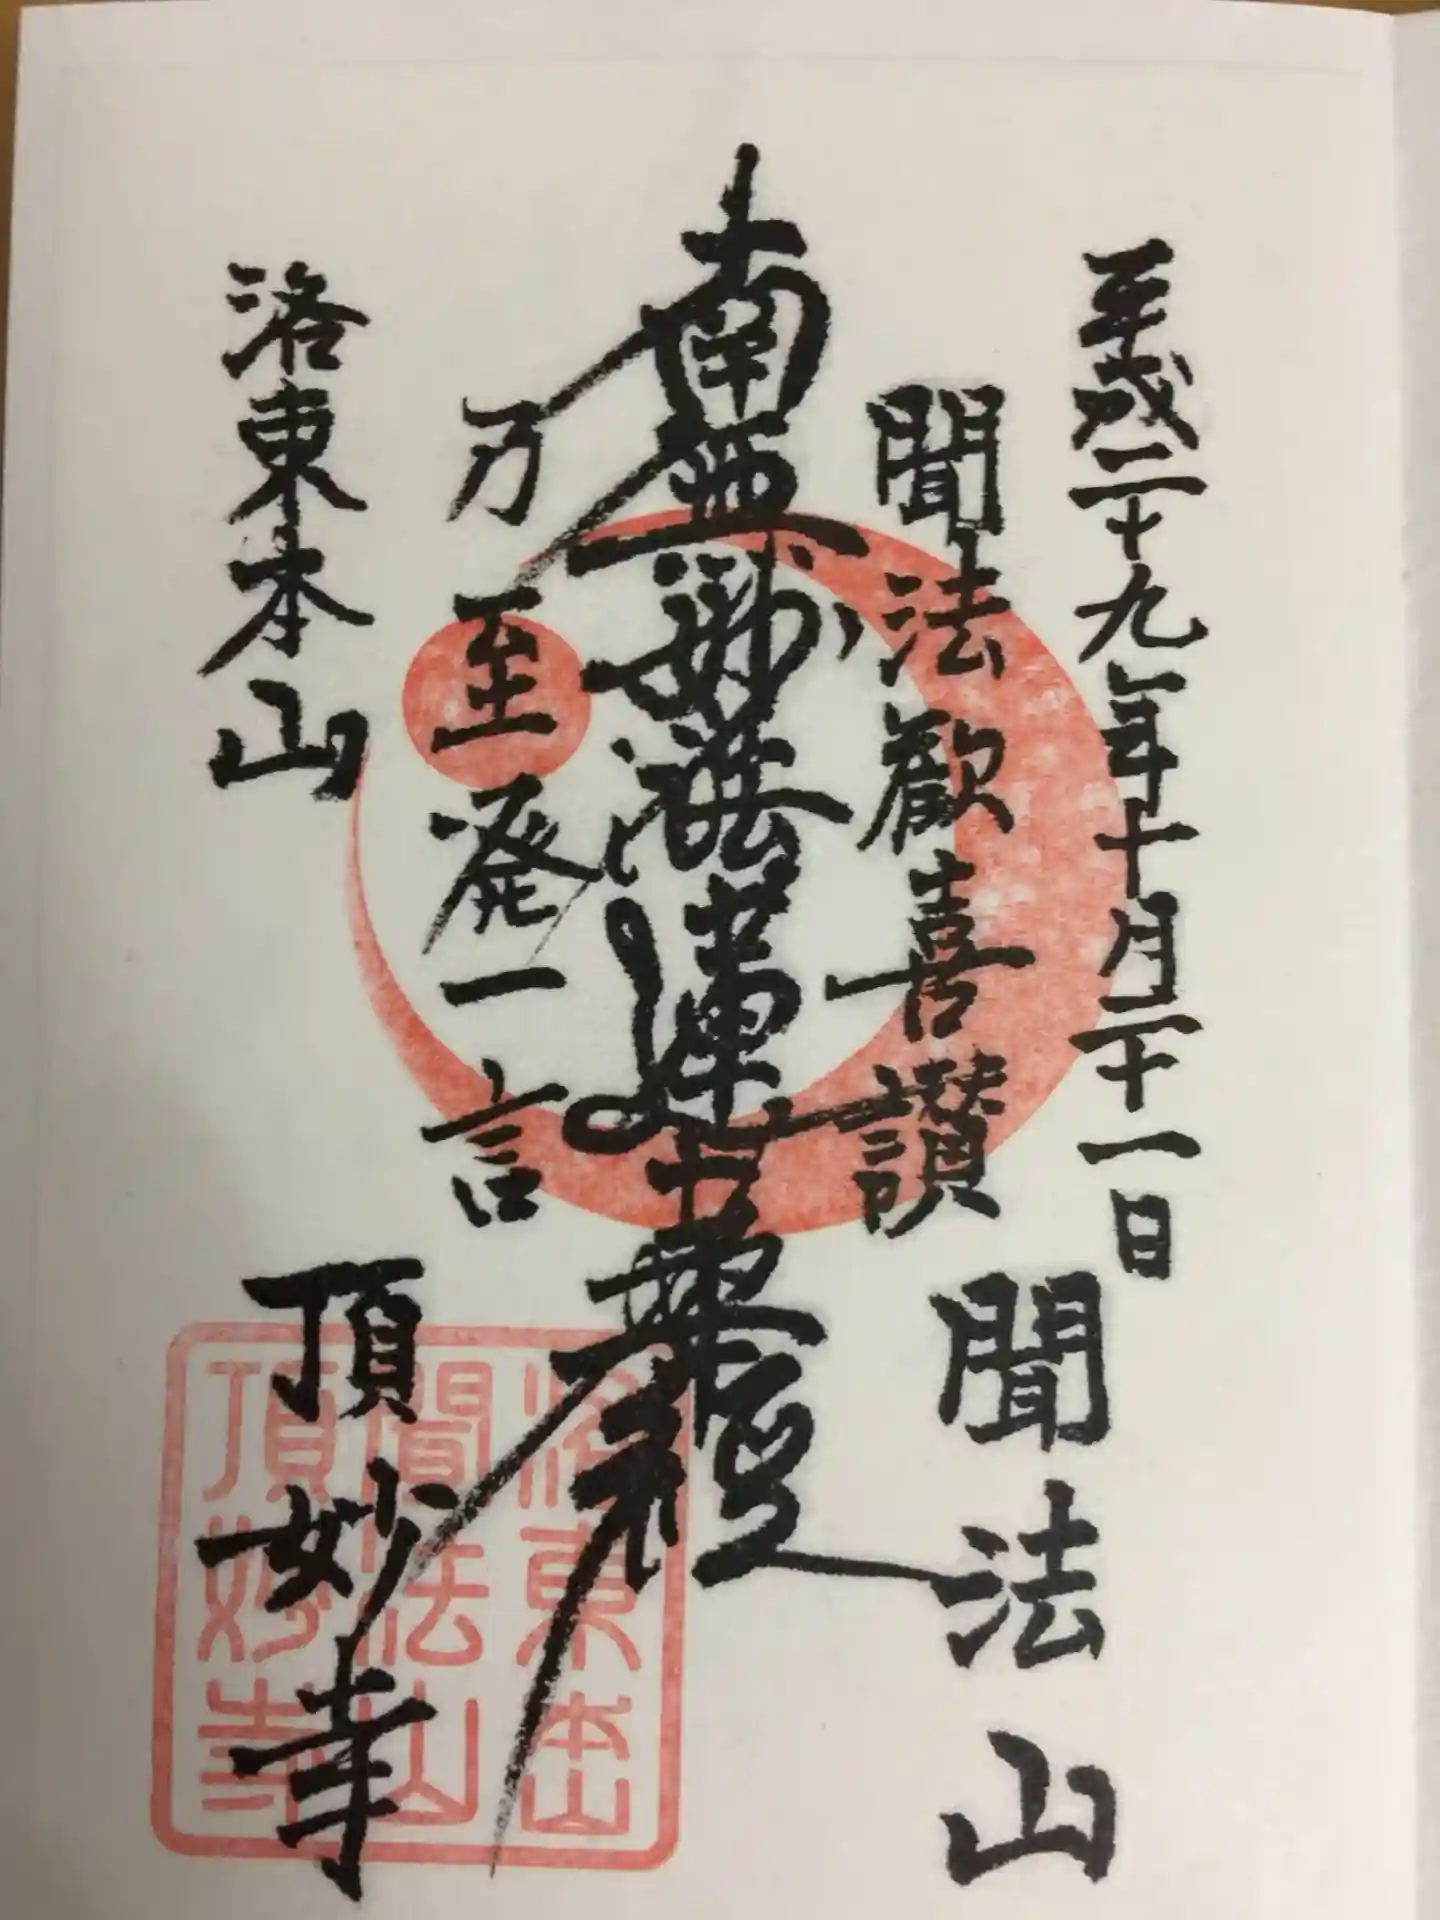 平成二十九年十月二十一日
聞法山
聞法歓喜讃
南無妙法蓮華経
万至発一言
洛東本山
頂妙寺
洛東本山
聞法山
頂妙寺